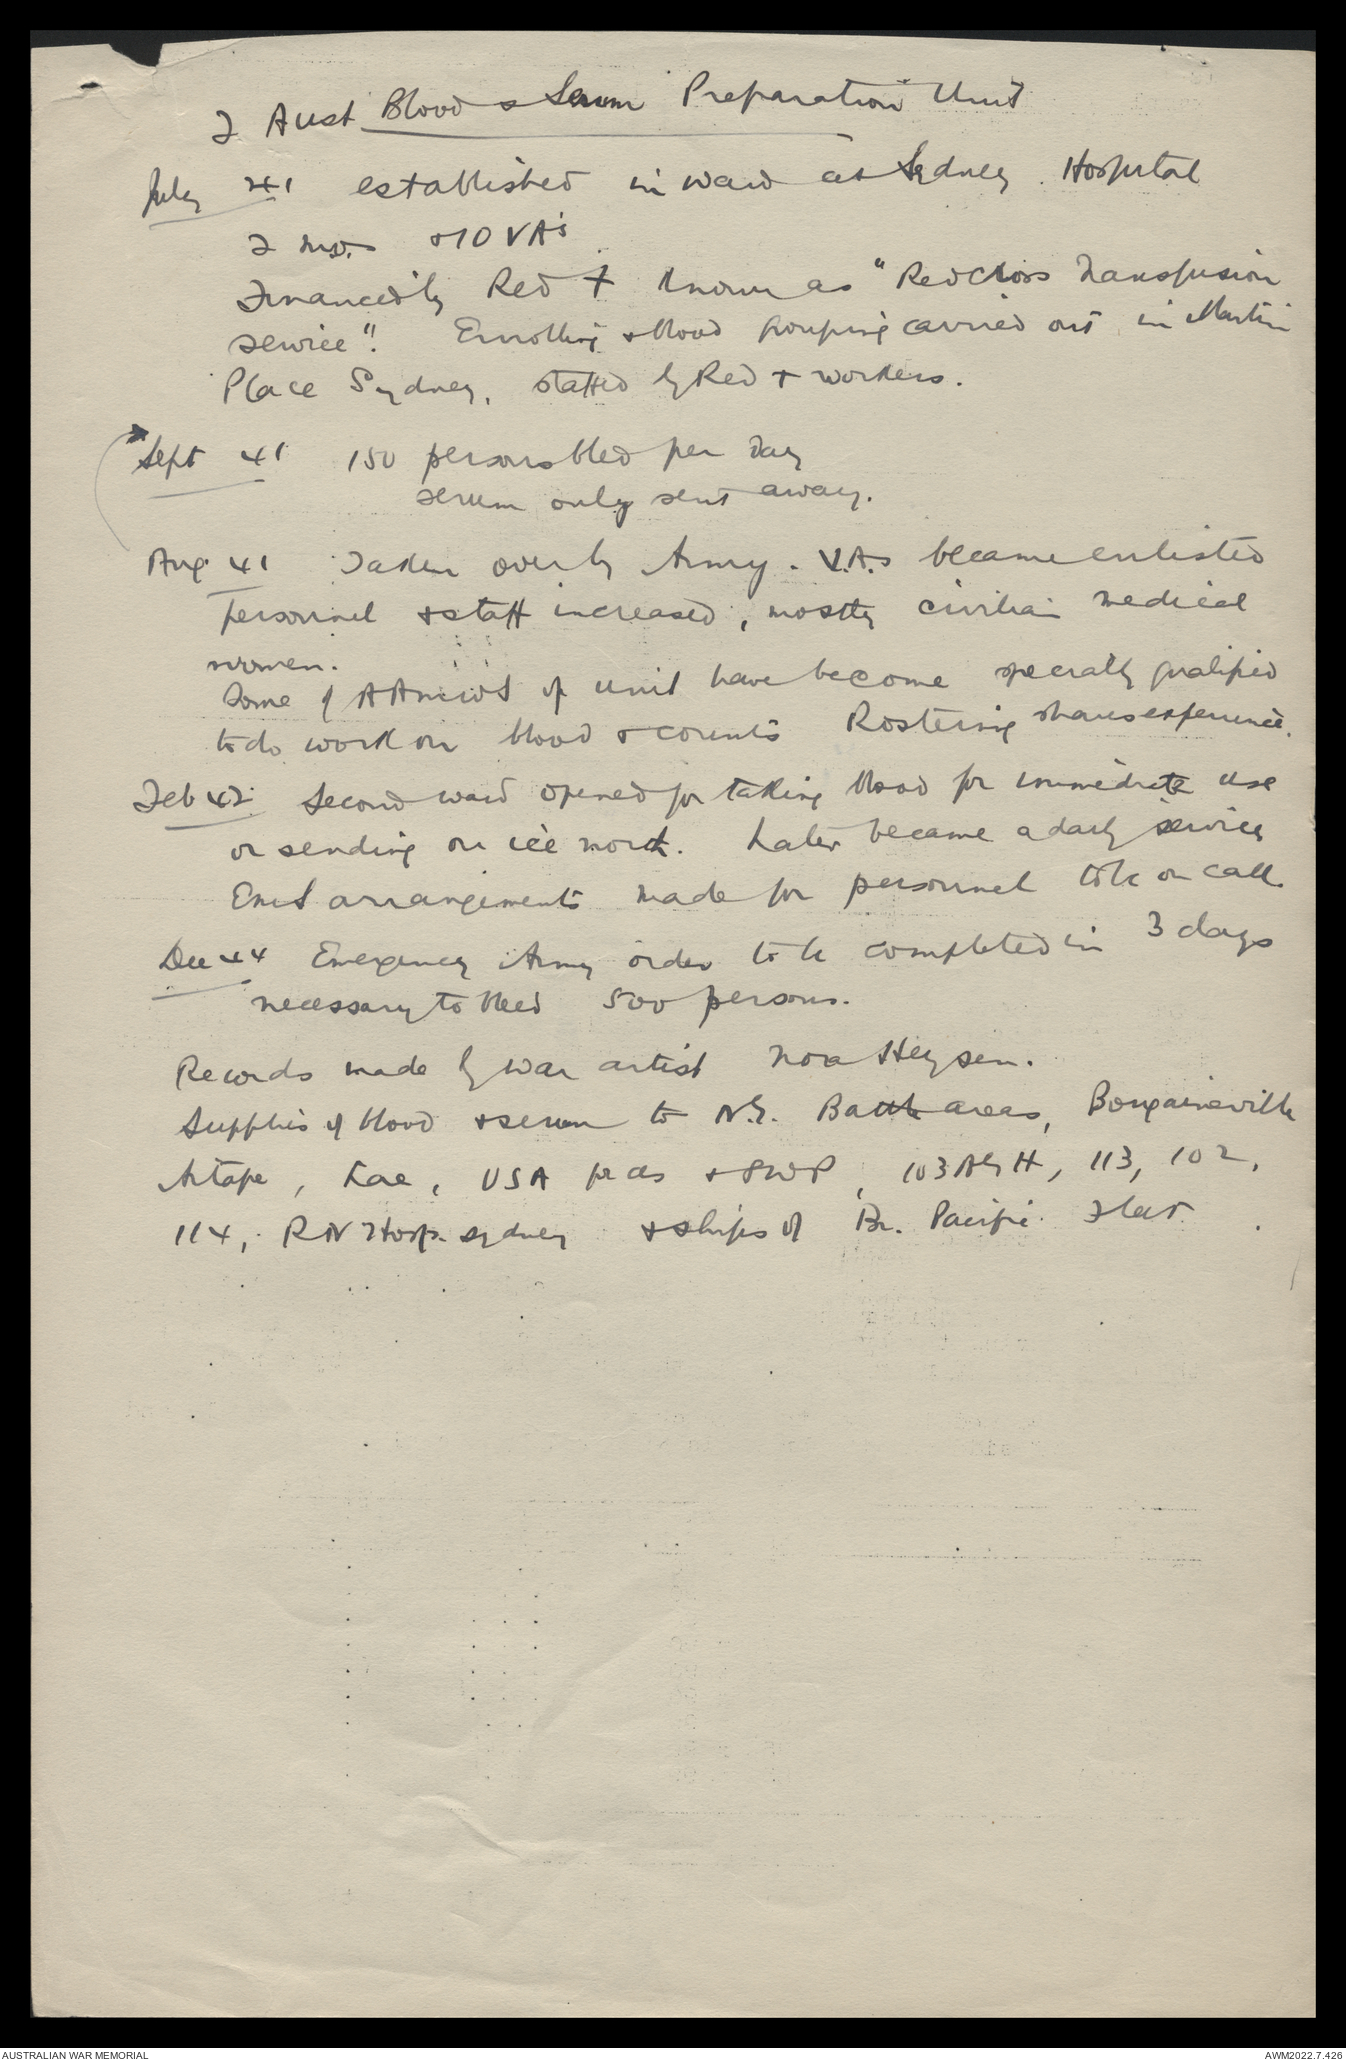 2 Aust Blood & Serum Preparation Unit
July 41 established in ward at Sydney Hospital
2 mos. & 10 VA's
Financed by Red + known as "Red Cross Transfusion
service". Enrolling & blood grouping carried out in Martin
Place Sydney, staffed by Red + workers.
Sept 41 150 persons bled per day
serum only sent away.
Aug 41 Taken over by Army. V.A.s became enlisted
personnel & staff increased, mostly civilian medical
women.
Some of AAMWS of unit have become specially qualified
to do work on blood & counts Rostering shares experience.
Feb 42 Second ward opened for taking blood for immediate use
or sending on ice north. Later became a daily service
Emst arrangements made for personnel to be on call.
Dec 44 Emergency Army order to be completed in 3 days
necessary to bleed 500 persons.
Records made by war artist Nora Heysen.
Supplies of blood & serum to N.G. Battle areas, Bougaineville
Aitape, Lae, USA for as & SWP, 103 AGH, 113, 102,
114, RN Hosp. Sydney & ships of Br. Pacific Fleet.
AUSTRALIAN WAR MEMORIAL
AWM2022.7.426